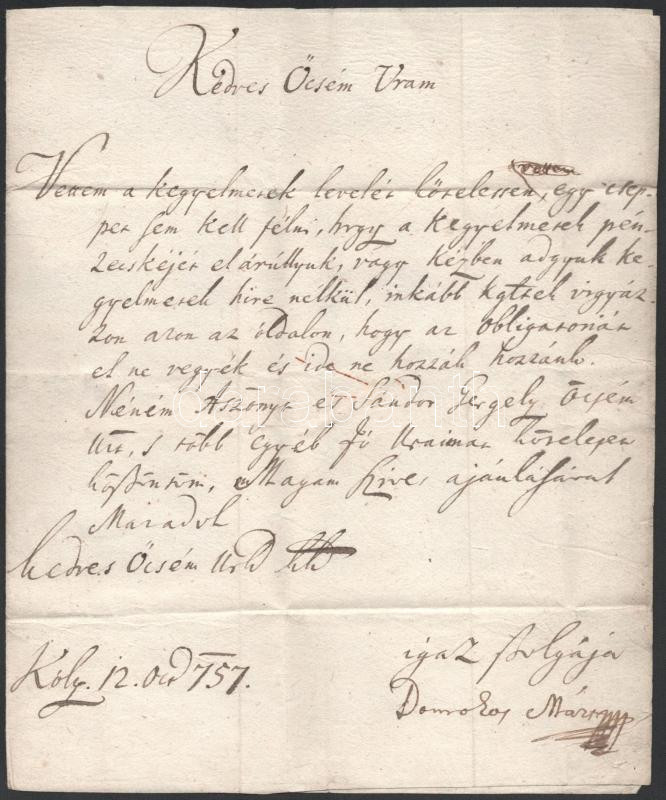 Kedves Öcsém Uram
Vettem a kegyelmetek levelét kötelessen, egy csep-
pet sem kell félni, hogy a kegyelmetek pén-
zecskéjét elárúllyuk, vagy kézben adgyuk ke-
gyelmetek hire nélkül, inkább kgltek vigyáz-
zon azon az óldalon, hogy az obligatoriát
el ne vegyék és ide ne hozzák hozzánk.
Néném Aszonyt es Sándor Gergely Öcsém
Urt, s több egyéb Jó Uraimat kötelesen
köszöntöm, Magam szives ajánlásával
Maradok
kedves Öcsém Urd
Koly. 12. Oct 757.
igaz szolgája
Domokos Márton